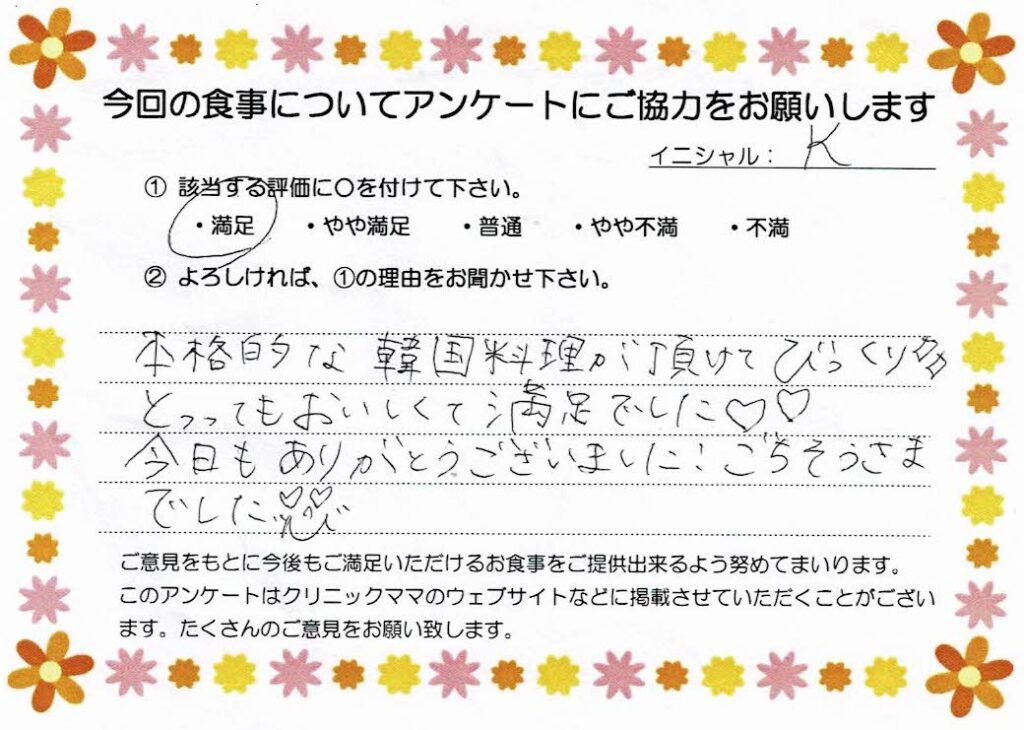 今回の食事についてアンケートにご協力をお願いします
イニシャル： K
① 該当する評価に〇を付けて下さい。
・満足 ・やや満足 ・普通 ・やや不満 ・不満
② よろしければ、①の理由をお聞かせ下さい。
本格的な韓国料理が頂けてびっくり
とってもおいしくて満足でした♡♡
今日もありがとうございました！ごちそうさま
でした
ご意見をもとに今後もご満足いただけるお食事をご提供出来るよう努めてまいります。
このアンケートはクリニックママのウェブサイトなどに掲載させていただくことがござい
ます。たくさんのご意見をお願い致します。